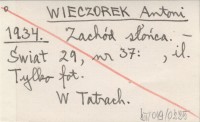 WIECZOREK Antoni
1934. Zachód słońca. -
Świat 29, nr 37: , il.
Tylko fot.
W Tatrach.